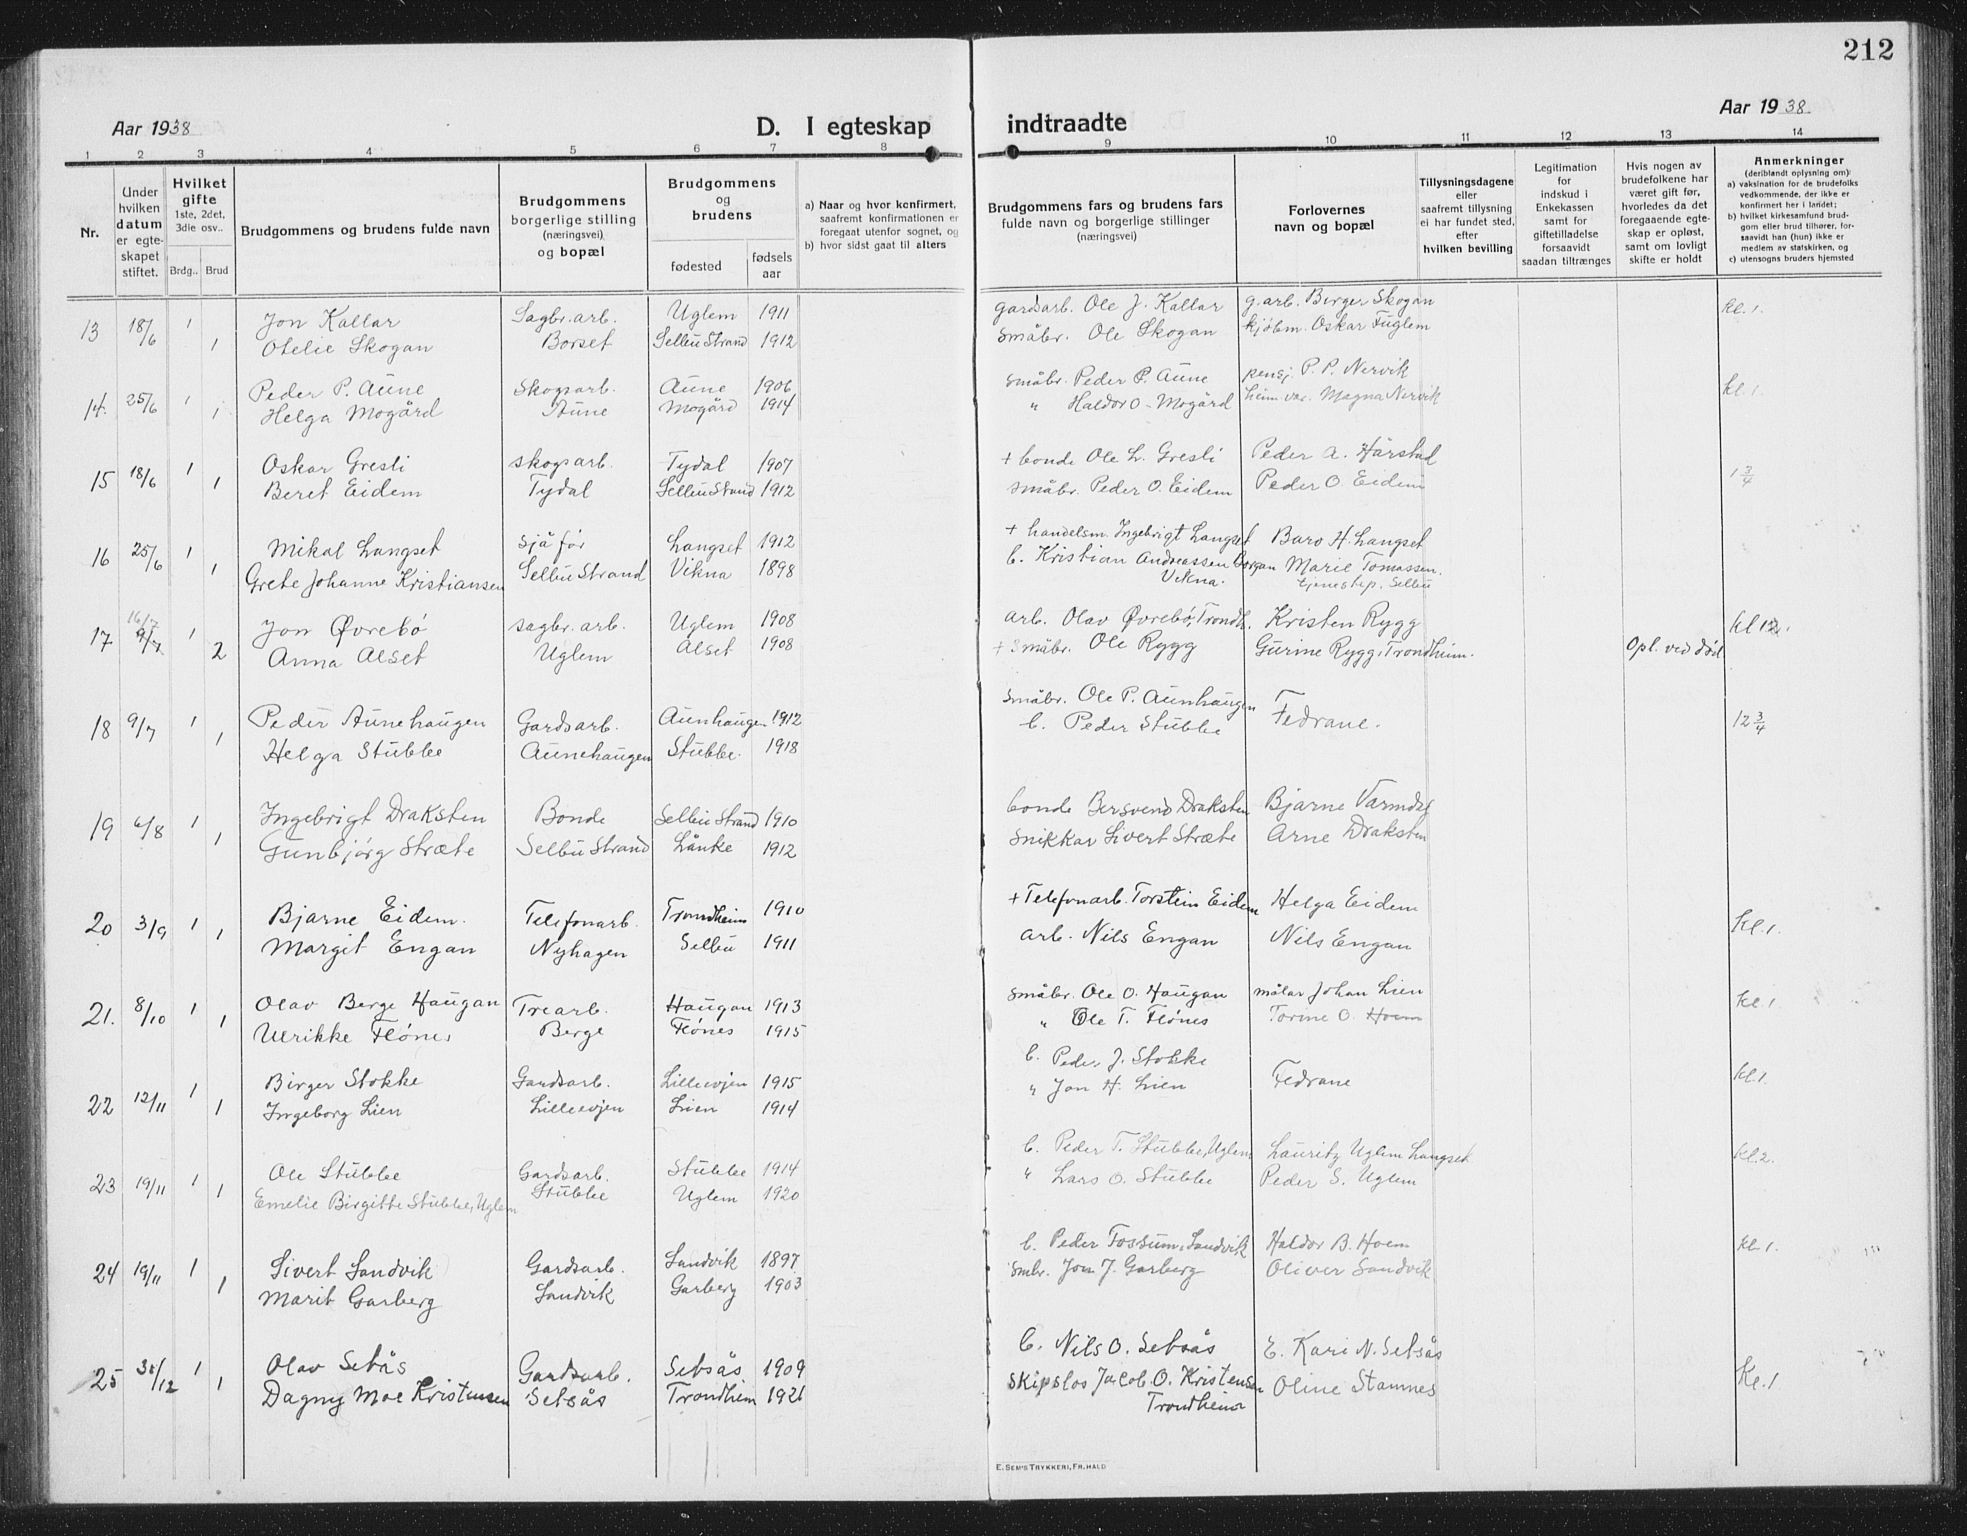 212
Aar 1938
D. I egteskap indtraadte
Aar 1938.
1 2 3 4 5 6 7 8 9 10 11 12 13 14
Nr.
Under hvilken datum er egteskapet stiftet.
Hvilket gifte
1ste, 2det, 3dle osv..
Brdg.. Brud
Brudgommens og brudens fulde navn
Brudgommens borgerlige stilling (næringsvei) og bopæl
Brudgommens og brudens
fødested
fødsels aar
a) Naar og hvor konfirmert, saafremt konfirmationen er foregaat utenfor sognet, og
b) hvor sidst gaat til alters
Brudgommens fars og brudens fars fulde navn og borgerlige stillinger (næringsvei)
Forlovernes navn og bopæl
Tillysningsdagene eller saafremt tillysning ei har fundet sted, efter hvilken bevilling
Legitimation for indskud i Enkekassen samt for giftetilladelse forsaavidt saadan tiltrænges
Hvis nogen av brudefolkene har været gift før, hvorledes da det foregaaende egteskap er opløst, samt om lovligt skifte er holdt
Anmerkninger
(deriblandt oplysning om):
a) vaksination for de brudefolks vedkommende, der ikke er konfirmert her i landet;
b) hvilket kirkesamfund brudgom eller brud tilhører, forsaavidt han (hun) ikke er medlem av statskirken, og
c) utensogns bruders hjemsted
13 18/6 1 Jon Kallar Sagbr. arb. Uglem 1911 gardsarb. Ole J. Kallar g. arb. Birger Skogan kl. 1.
1 Otelie Skogan Borset Selbu Strand 1912 småbr. Ole Skogan kjøbm. Oskar Fuglem
14. 25/6 1 Peder P. Aune Skogsarb. Aune 1906 småbr. Peder P. Aune pensj. P. P. Nervik kl. 1.
1 Helga Mogård Aune Mogård 1914 " Haldor O. Mogård heim.var. Magna Nervik
15 18/6 1 Oskar Gresli skogsarb. Tydal 1907 + bonde Ole L. Gresli Peder A. Hårstad 1 3/4
1 Beret Eidem Tydal Selbu Strand 1912 småbr. Peder O. Eidem Peder O. Eidem
16 25/6 1 Mikal Langset sjåfør Langset 1912 + handelsm. Ingebrigt Langset Baro H. Langset
1 Grete Johanne Kristiansen Selbu Strand Vikna 1898 b. Kristian Andreassen Borgan Marie Tomassen.
Vikna. Selbu
17 16/7 9/7 1 Jon Øvrebø sagbr. arb. Uglem 1908 arb. Olav Øvrebø, Trondh. Kristen Rygg kl 12.
2 Anna Alset Uglem Alset 1908 + Småbr. Ole Rygg Gurine Rygg, Trondheim. Opl. ved død
18 9/7 1 Peder Aunehaugen Gardsarb. Aunhaugen 1912 småbr. Ole P. Aunhaugen Fedrane. 12 3/4
1 Helga Stubbe Aunehaugen Stubbe. 1918 b. Peder Stubbe
19 6/8 1 Ingebrigt Draksten Bonde Selbu Strand 1910 bonde Bersvend Draksten Bjarne Varmdal
1 Gunbjørg Stræte Selbu Strand Lånke 1912 snikkar Sivert Stræte Arne Draksten
20 3/9 1 Bjarne Eidem. Telefonarb. Trondheim 1910 + Telefonarb. Torstein Eidem Helga Eidem kl. 1.
1 Margit Engan Nyhagen Selbu 1911 arb. Nils Engan Nils Engan
21. 8/10 1 Olav Berge Haugan Trearb. Haugan 1913 småbr. Ole O. Haugan målar Johan Lien kl. 1
1 Ulrikke Flønes Berge Flønes 1915 " Ole T. Flønes Torine O. Hoem
22 12/11 1 Birger Stokke Gardsarb. Lilleevjen 1915 b. Peder J. Stokke Fedrane kl. 1.
1 Ingeborg Lien Lilleevjen Lien 1914 " Jon H. Lien
23 19/11 1 Ole Stubbe Gardsarb. Stubbe 1914 b. Peder T. Stubbe, Uglem Lauritz Uglem Langset kl. 2.
1 Emelie Birgitte Stubbe, Uglem Stubbe Uglem 1920 " Lars O. Stubbe Peder S. Uglem
24 19/11 1 Sivert Sandvik Gardsarb. Sandvik 1897 b. Peder Fossum, Sandvik Haldor B. Hoem kl. 1.
1 Marit Garberg Sandvik Garberg 1903 Smbr. Jon J. Garberg Oliver Sandvik
25 /12 1 Olav Setsås Gardsarb. Setsås 1909 b. Nils O. Setsås E. Kari N. Setsås Kl. 1
1 Dagny Moe Kristensen Setsås Trondheim 1921 Skipslos Jacob. O. Kristensen Oline Stamnes
Trondheim
E. SEM'S TRYKKERI, FR. HALD